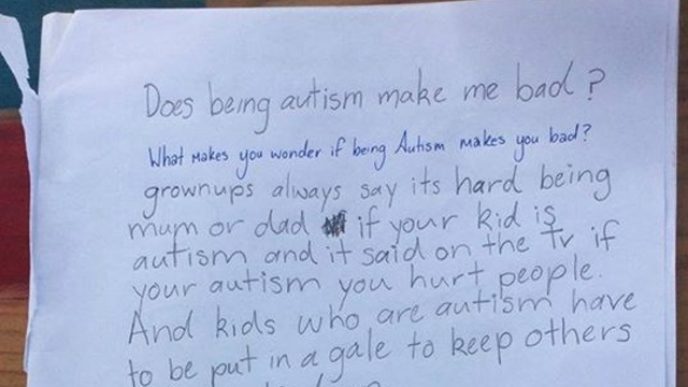 Does being autism make me bad?
What makes you wonder if being Autism makes you bad?
grownups always say its hard being
mum or dad if your kid is
autism and it said on the tv if
your autism you hurt people.
And kids who are autism have
to be put in a gale to keep others